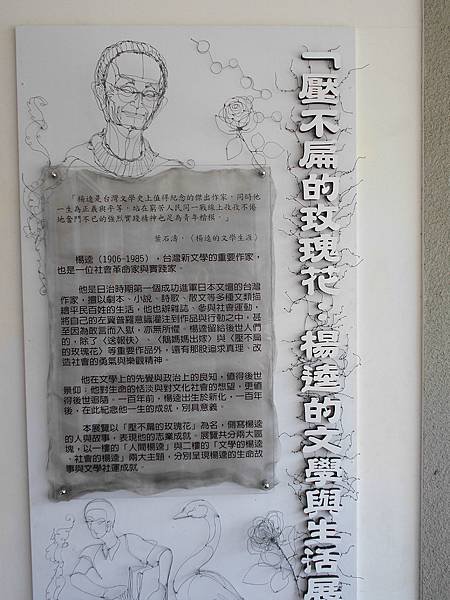 「壓不扁的玫瑰花：楊逵的文學與生活展
「楊逵是台灣文學史上值得紀念的傑出作家，同時他
一生為正義與平等，站在窮苦人民同一戰線上孜孜不倦
地奮鬥不已的強烈實踐精神也足為青年楷模。」
葉石濤，〈楊逵的文學生涯〉
楊逵（1906-1985），台灣新文學的重要作家，
也是一位社會革命家與實踐家。
他是日治時期第一個成功進軍日本文壇的台灣
作家，擅以劇本、小說、詩歌、散文等多種文類描
繪平民百姓的生活，他也辦雜誌、參與社會運動，
將自己的左翼普羅意識灌注到作品與行動之中，甚
至因為敢言而入獄，亦無所懼。楊逵留給後世人們
的，除了〈送報伕〉、〈鵝媽媽出嫁〉與〈壓不扁
的玫瑰花〉等重要作品外，還有那股追求真理、改
造社會的勇氣與樂觀精神。
他在文學上的先覺與政治上的良知，值得後世
景仰；他對生命的恬淡與對文化社會的想望，更值
得後世追隨。一百年前，楊逵出生於新化，一百年
後，在此紀念他一生的成就，別具意義。
本展覽以「壓不扁的玫瑰花」為名，側寫楊逵
的人與故事，表現他的志業成就。展覽共分兩大區
塊，以一樓的「人間楊逵」與二樓的「文學的楊逵
、社會的楊逵」兩大主題，分別呈現楊逵的生命故
事與文學社運成就。